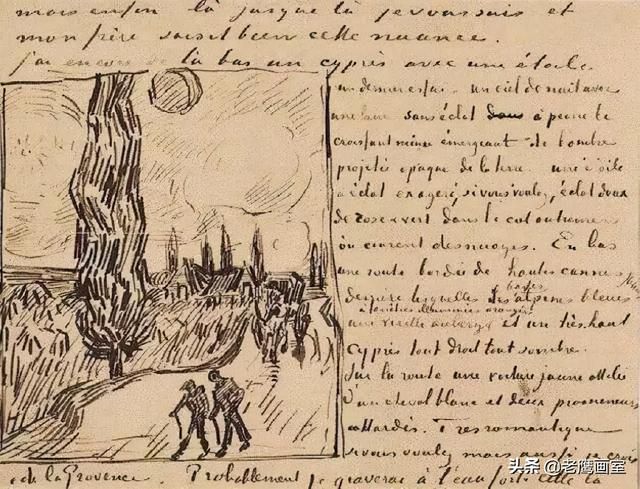 mais enfin là jusque là je vous sais et
mon frère saisit bien cette nuance.
J'ai encore de là bas un cyprès avec une étoile
un dernier essai - un ciel de nuit avec
une lune sans éclat à peine le
croissant mince émergeant de l'ombre
projetée opaque de la terre - une étoile
à éclat exagéré, si vous voulez, éclat doux
de rose & vert dans le ciel outremer
où courent des nuages. En bas
une route bordée de hautes cannes
derrière lesquelles les basses alpines bleues
à fenêtres illuminées orangées
une vieille auberge et un très haut
cyprès tout droit tout sombre.
Sur la route une voiture jaune attelée
d'un cheval blanc et deux promeneurs
attardés. Très romantique
si vous voulez mais aussi je crois
de la Provence. Probablement je graverai à l'eau forte celle là
头条 @老鹰画室